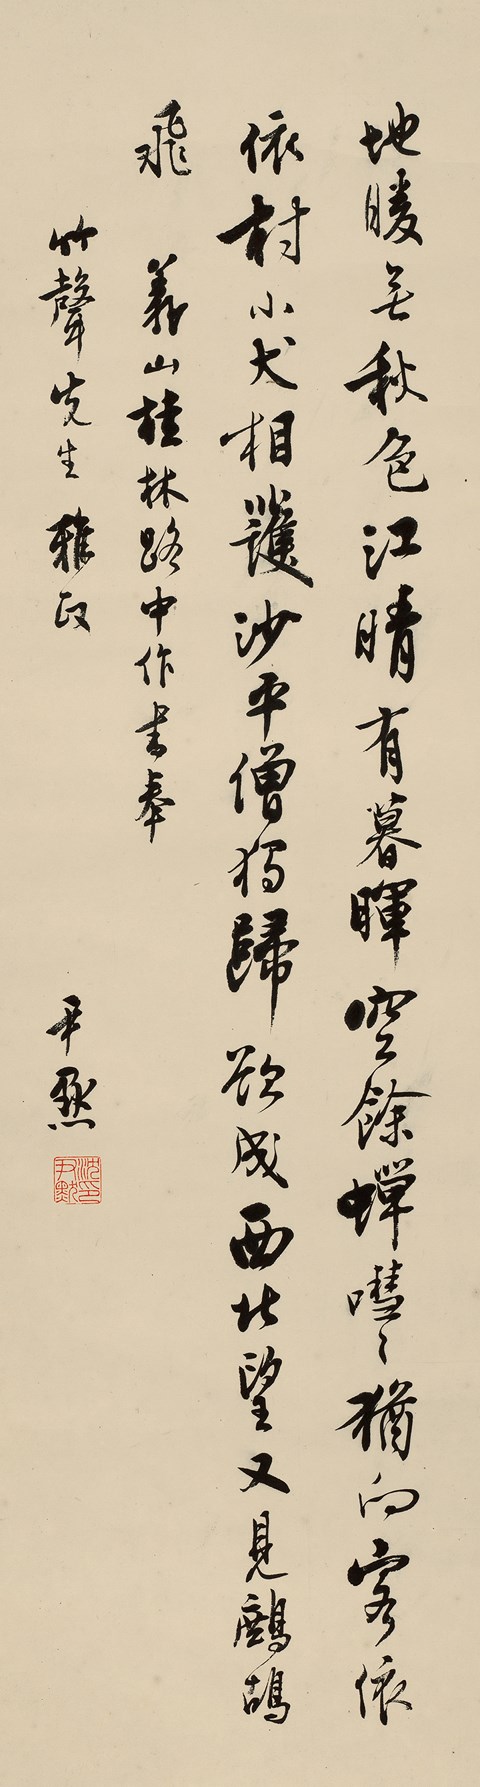 地暖無秋色江晴有暮暉空餘蟬嘒〻猶向客依
依村小犬相護沙平僧獨歸欲成西北望又見鷓鴣
飛 義山桂林路中作書奉
竹聲先生雅政
尹默
沈尹默印